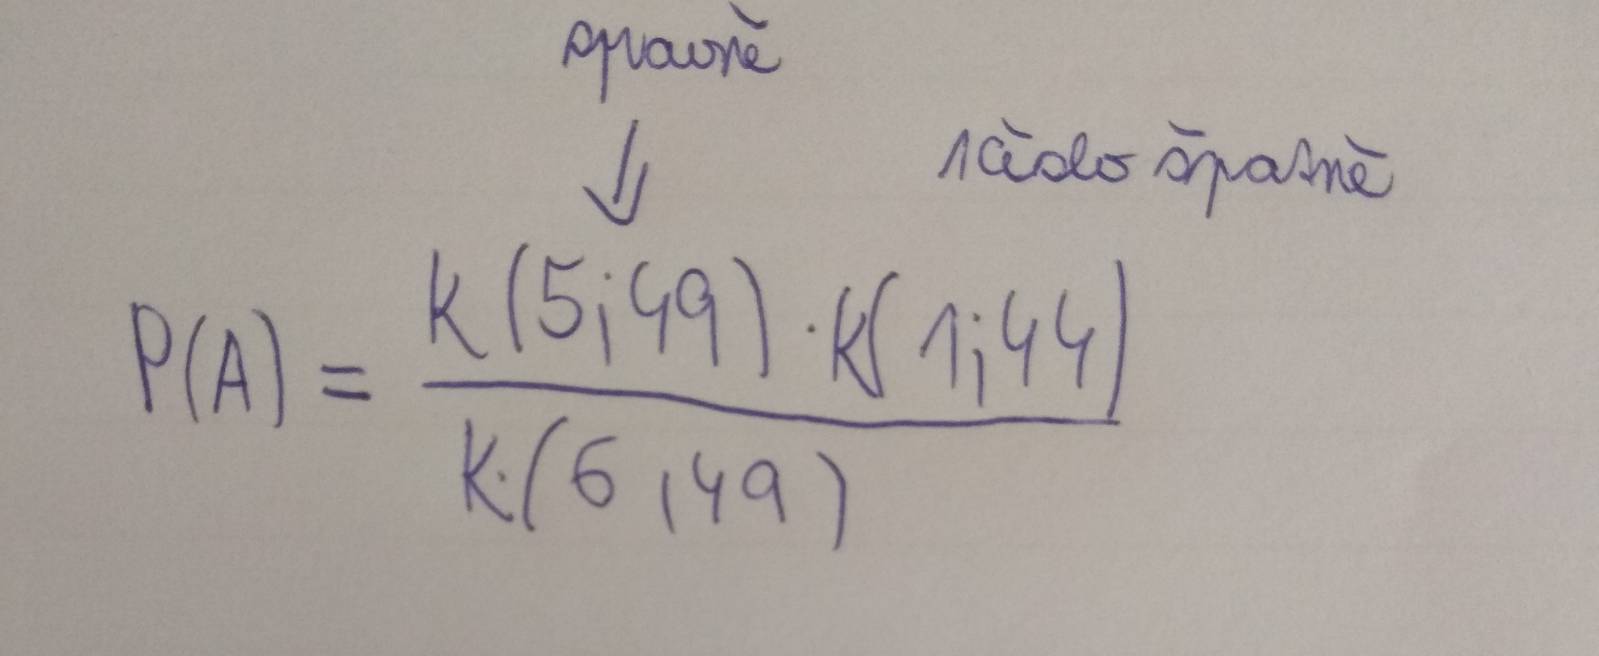 správně
1číslo špatně
P(A) = K(5;49) · K(1;44)
K(6,49)